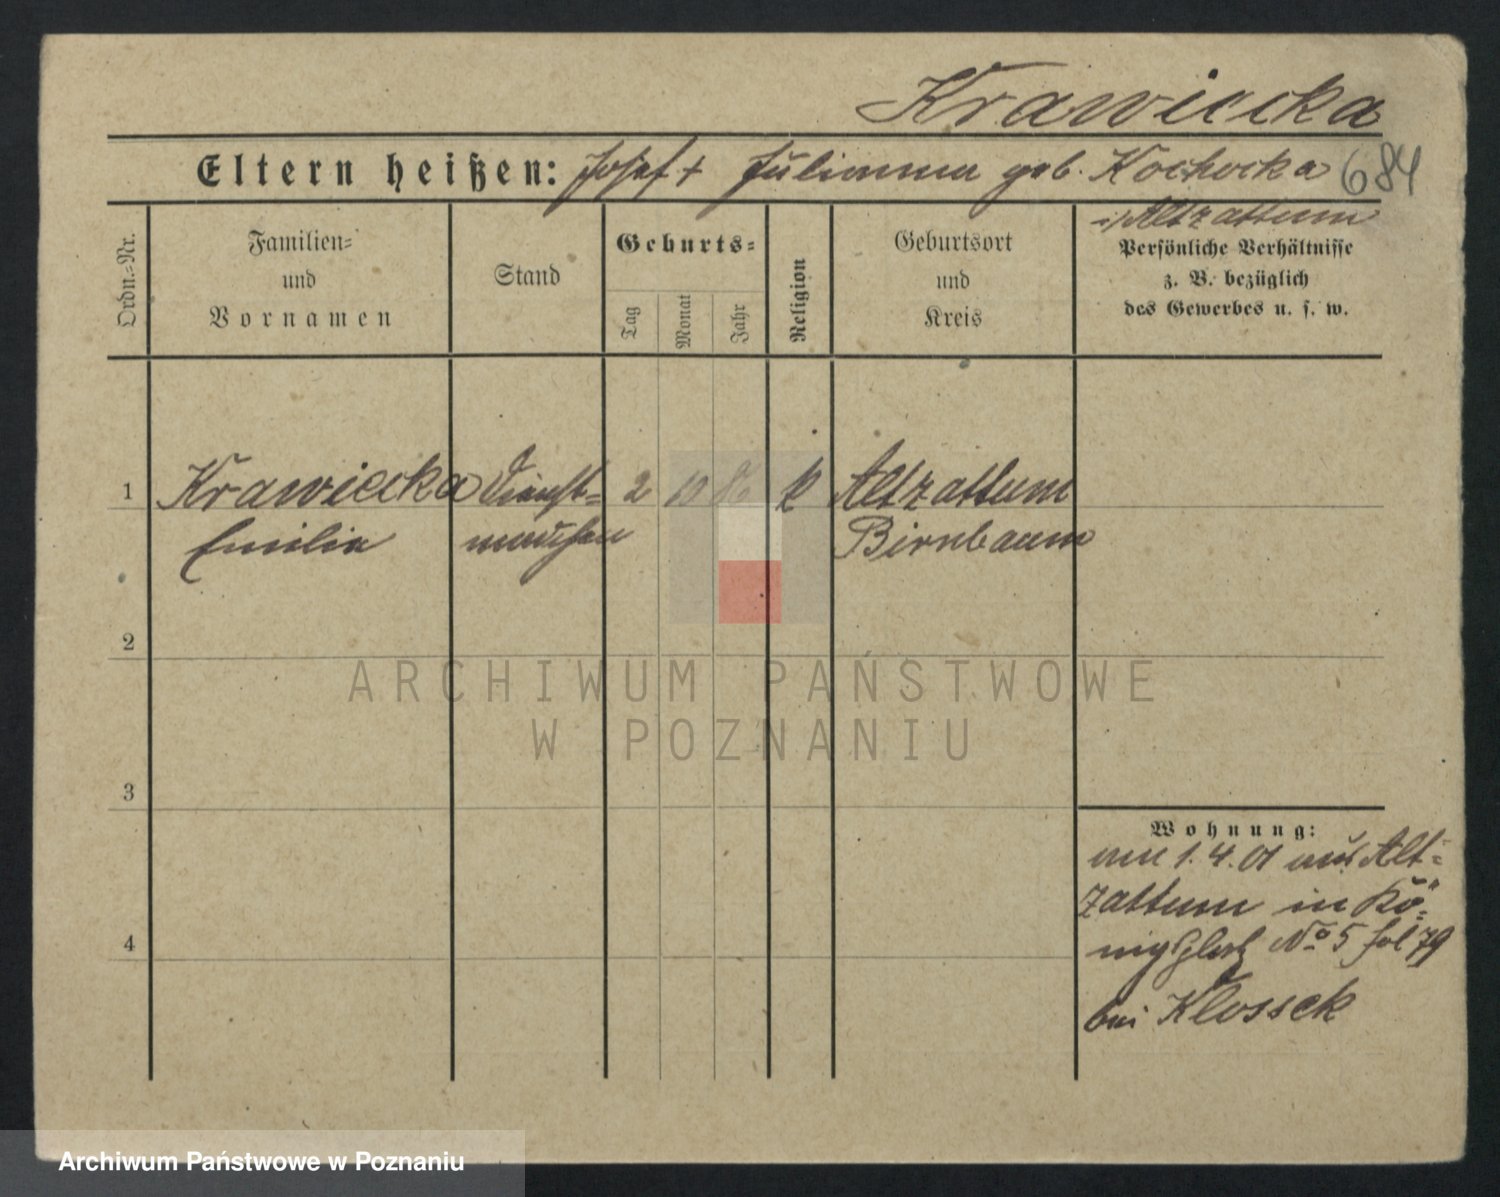 Krawiecka
Eltern heißen: Josef + Julianna geb. Kochocka 684
i/Altzattum
Ordn.=Nr.
Familien=
und
Vornamen
Stand
Geburts=
Tag
Monat
Jahr
Religion
Geburtsort
und
Kreis
Persönliche Verhältnisse
z. B. bezüglich
des Gewerbes u. s. w.
1 Krawiecka Dienst= 2 10 k Altzattum
Emilia mädchen Birnbaum
2
3
4
Wohnung:
am 1.4.01 aus Alt=
zattum in Kö=
No 5 fol 79
bei Klossek
ARCHIWUM PAŃSTWOWE
W POZNANIU
Archiwum Państwowe w Poznaniu